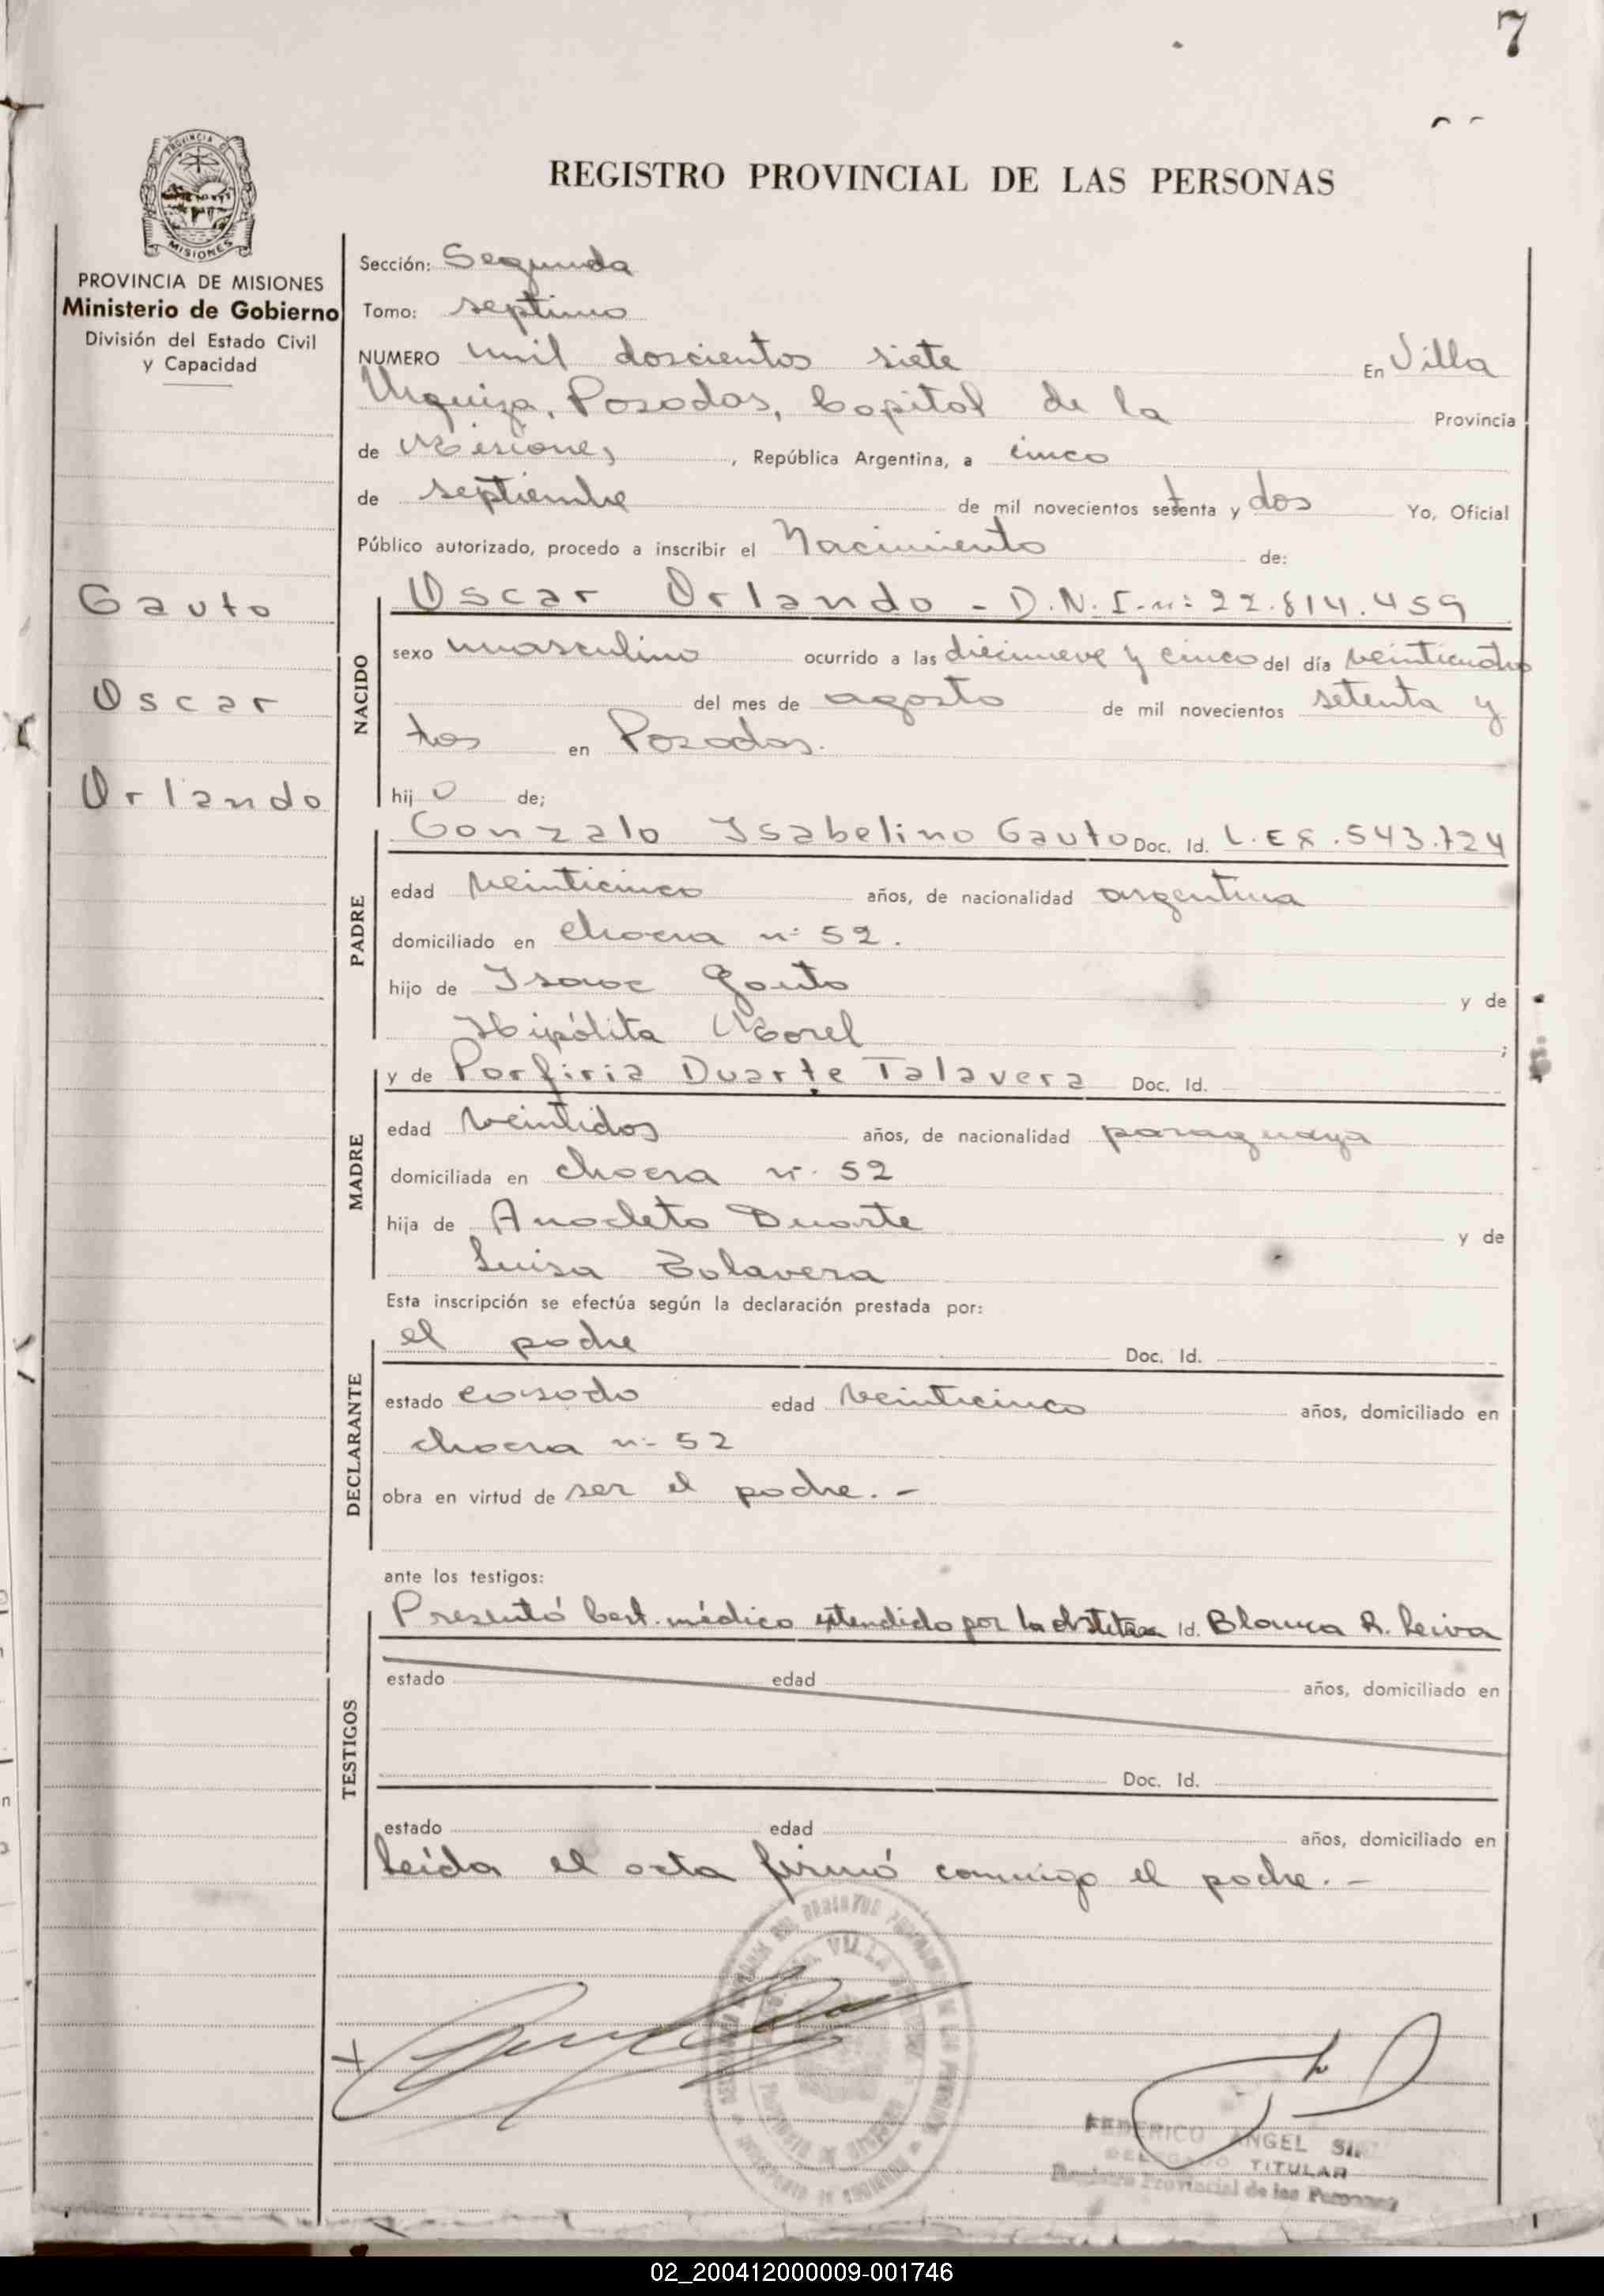 7
REGISTRO PROVINCIAL DE LAS PERSONAS
PROVINCIA DE MISIONES
Ministerio de Gobierno
División del Estado Civil
y Capacidad
Gauto
Oscar
Orlando
Sección: Segunda
Tomo: septimo
NUMERO mil doscientos siete En Villa
Urquiza, Posadas, Capital de la Provincia
de Misiones, República Argentina, a cinco
de septiembre de mil novecientos setenta y dos Yo, Oficial
Público autorizado, procedo a inscribir el Nacimiento de:
NACIDO
Oscar Orlando - D.N.I. nº 22.814.459
sexo masculino ocurrido a las diecinueve y cinco del día veinticuatro
del mes de agosto de mil novecientos setenta y
dos en Posadas.
hijo de;
PADRE
Gonzalo Isabelino Gauto Doc. Id. L.E 8.543.724
edad veinticinco años, de nacionalidad argentina
domiciliado en chacra nº 52.
hijo de Isaac Gauto y de
Hipólita Morel ;
MADRE
y de Porfiria Duarte Talavera Doc. Id.
edad veintidos años, de nacionalidad paraguaya
domiciliada en chacra nº 52
hija de Anacleto Duarte y de
Luisa Talavera
Esta inscripción se efectúa según la declaración prestada por:
DECLARANTE
el padre Doc. Id.
estado casado edad veinticinco años, domiciliado en
chacra nº 52
obra en virtud de ser el padre. -
ante los testigos:
TESTIGOS
Presentó Cert. médico extendido por la obstetra Id. Blanca R. Leiva
estado edad años, domiciliado en
Doc. Id.
estado edad años, domiciliado en
Leída el acta firmó conmigo el padre. -
VILLA
FEDERICO ANGEL
DELEGADO TITULAR
Registro Provincial de las Personas
02_200412000009-001746